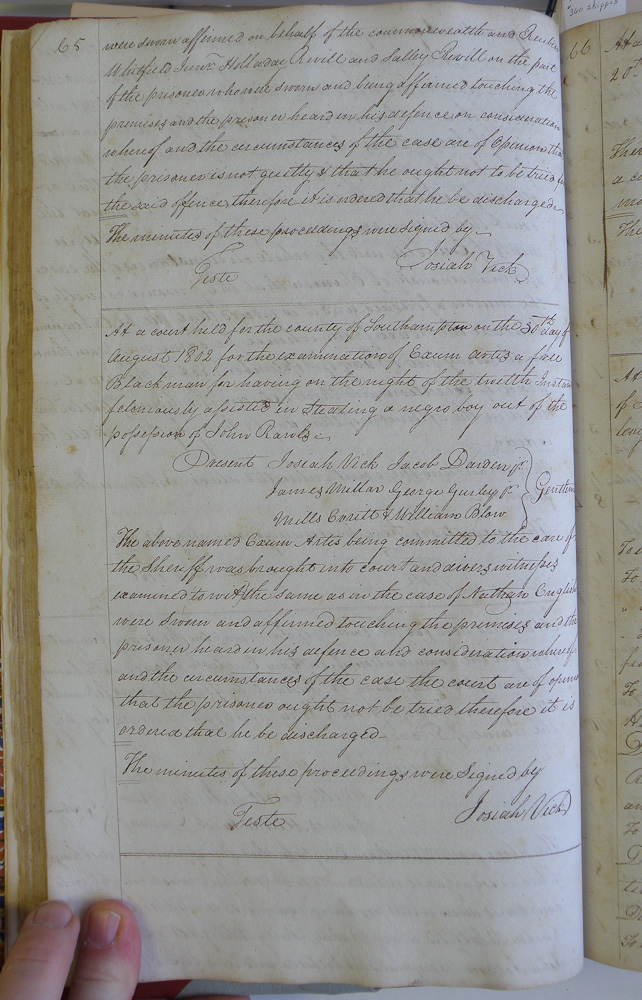 65
were sworn affirmed on behalf of the commonwealth and
Whitfield Junr. Holladay Revill and Salley Revill on the part
of the prisoner who were sworn and being affirmed touching the
premises and the prisoner heard in his defence on consideration
whereof and the circumstances of the case are of Opinion that
the prisoner is not guilty & that he ought not to be tried for
the said offence, therefore it is ordered that he be discharged
The minutes of these proceedings were signed by
Teste Josiah Vick
At a court held for the county of Southampton on the 30th day of
August 1802 for the examination of Exum Artis a free
Black man for having on the night of the twelth Instan
feloniously assisted in Steading a negro boy out of the
possession of John Rawls
Present Josiah Vick Jacob Darden jr.
James Millar George Gurley jr. Gentlem
Mills Everitt & William Blow
The above named Exum Artis being committed to the care of
the Sheriff was brought into court and divers witnesses
examined to wit the same as in the case of Nathan English
were Sworn and affirmed touching the premises and the
prisoner heard in his defence and consideration whereof
and the circumstances of the case the court are of opinio
that the prisoner ought not be tried therefore it is
ordered that he be discharged
The minutes of these proceedings were Signed by
Teste Josiah Vick
66